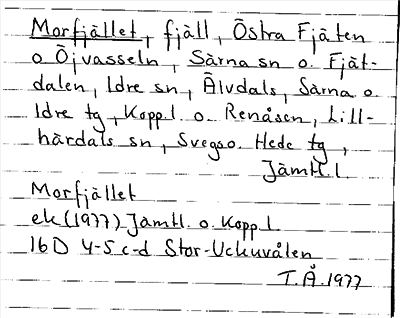 Morfjället, fjäll, Östra Fjäten
o Öjvasseln, Särna sn o. Fjät-
dalen, Idre sn, Älvdals, Särna o.
Idre tg, Kopp.l. o. Renåsen, Lill-
härdals sn, Svegs o. Hede tg,
Jämtl.l
Morfjället
ek (1977) Jämtl. o. Kopp.l.
16D 4-5 c-d Stor-Uckuvålen
T.Å. 1977